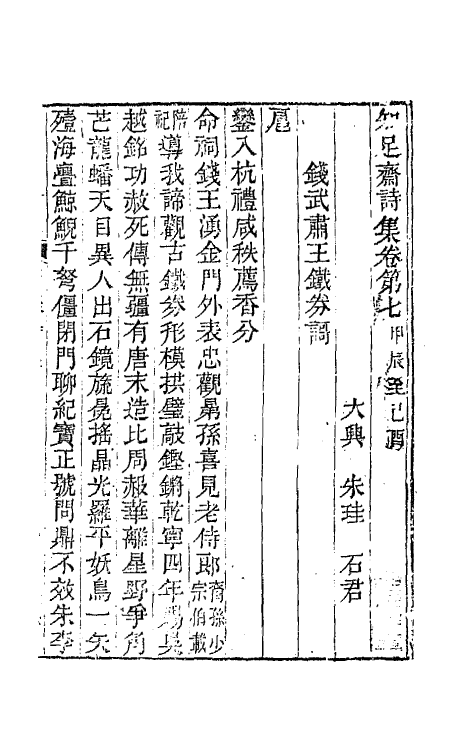 知足齋詩集卷第七甲辰至己酉
大興 朱珪 石君
錢武肅王鐵券謌
扈
鑾入杭禮咸秩薦香分
命祠錢王湧金門外表忠觀鼻孫喜見老侍郎裔孫少宗伯載
陪祀導我諦觀古鐵券形模拱璧敲鏗鏘乾寧四年賜吳
越銘功赦死傳無疆有唐末造比周赧華離星野爭角
芒龍蟠天目異人出石鏡旒冕搖晶光羅平妖鳥一矢
殪海疊鯨鯢千弩僵閉門聊紀寶正號問鼎不效朱李